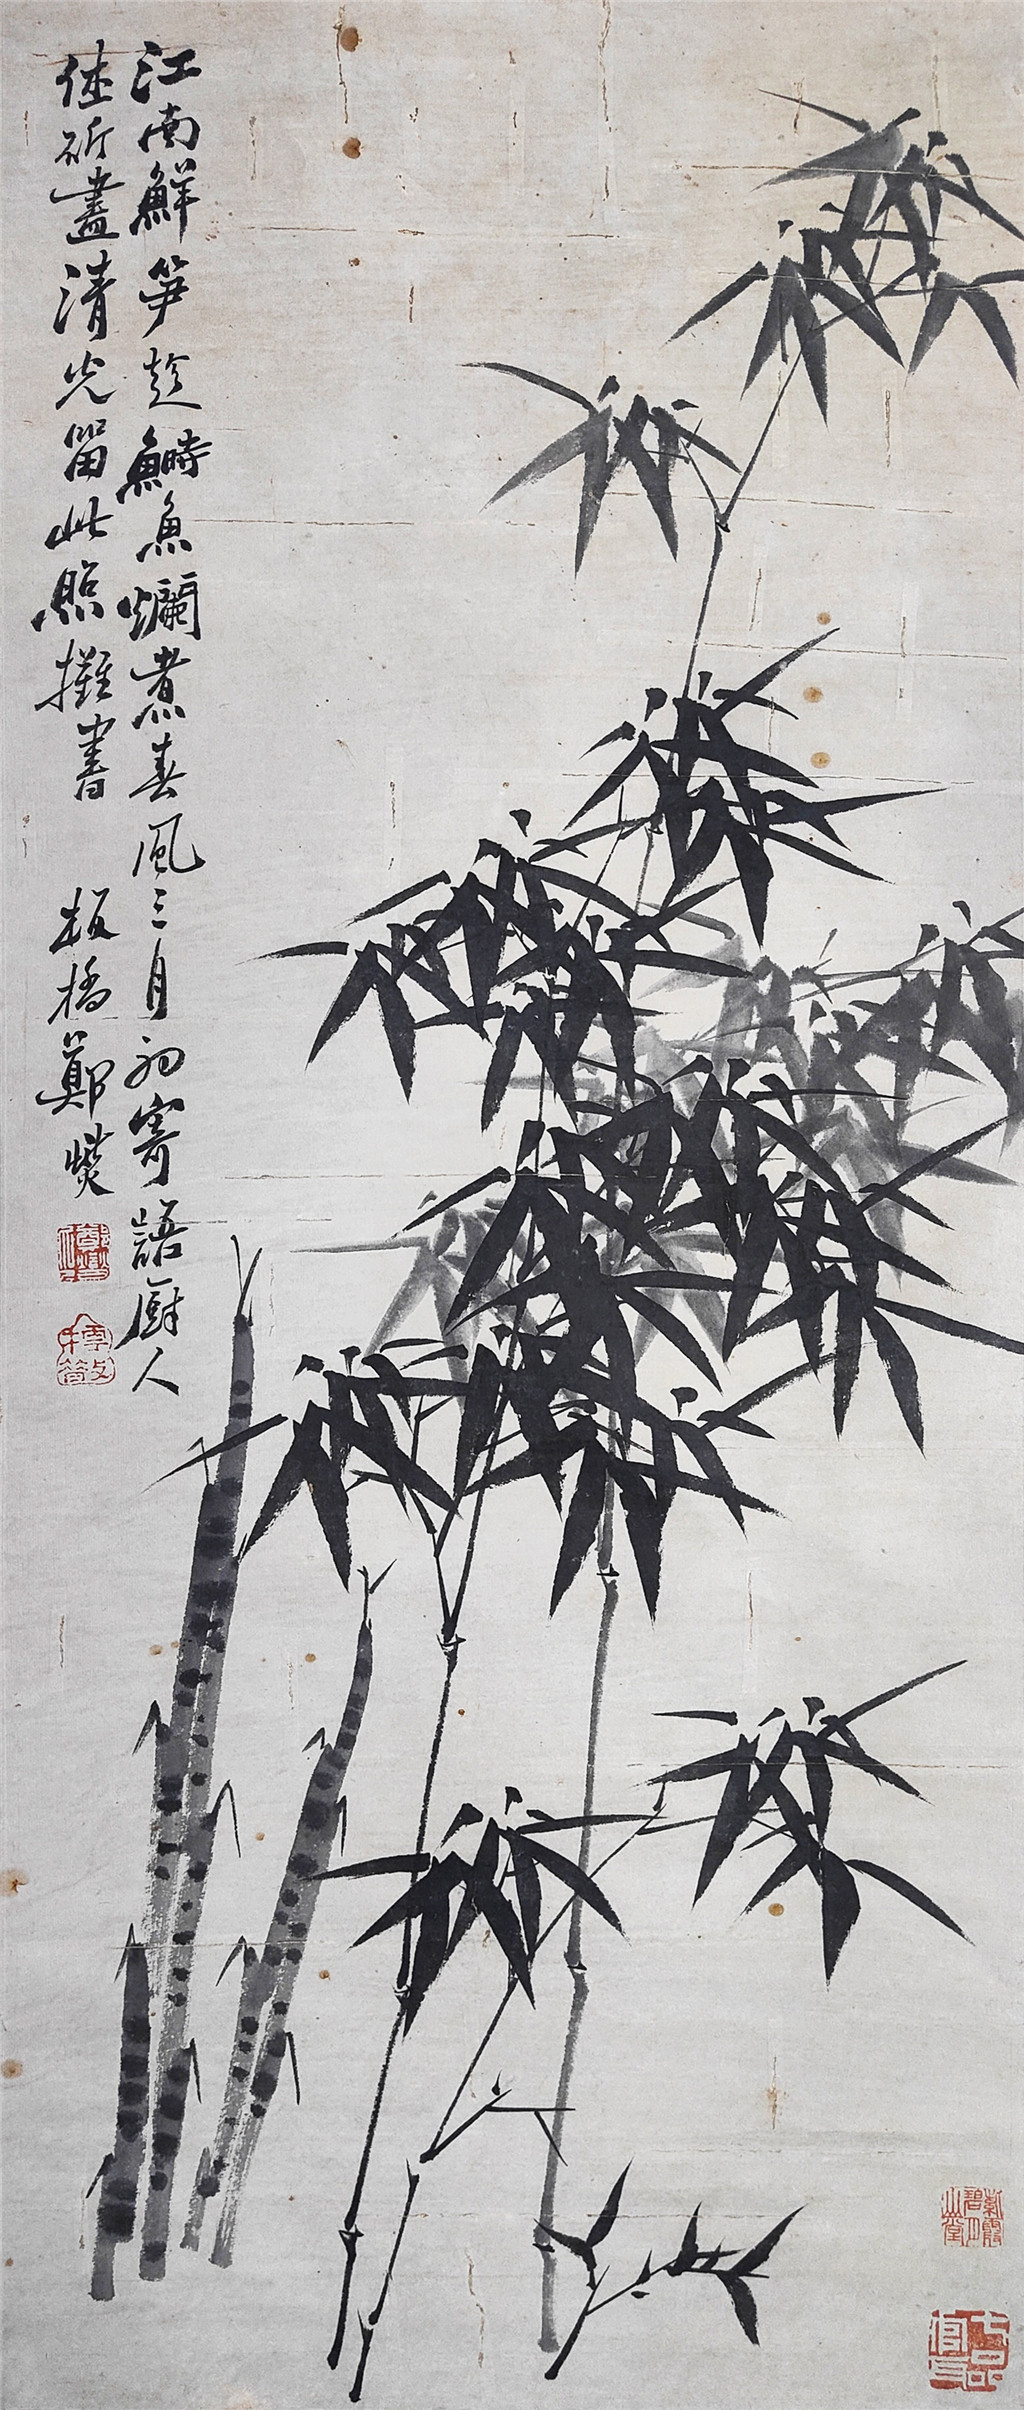 江南鮮筍趁鰣魚爛煮春風三月初寄語廚人
休斫盡清光留此照攤書　板橋鄭燮
七品官耳